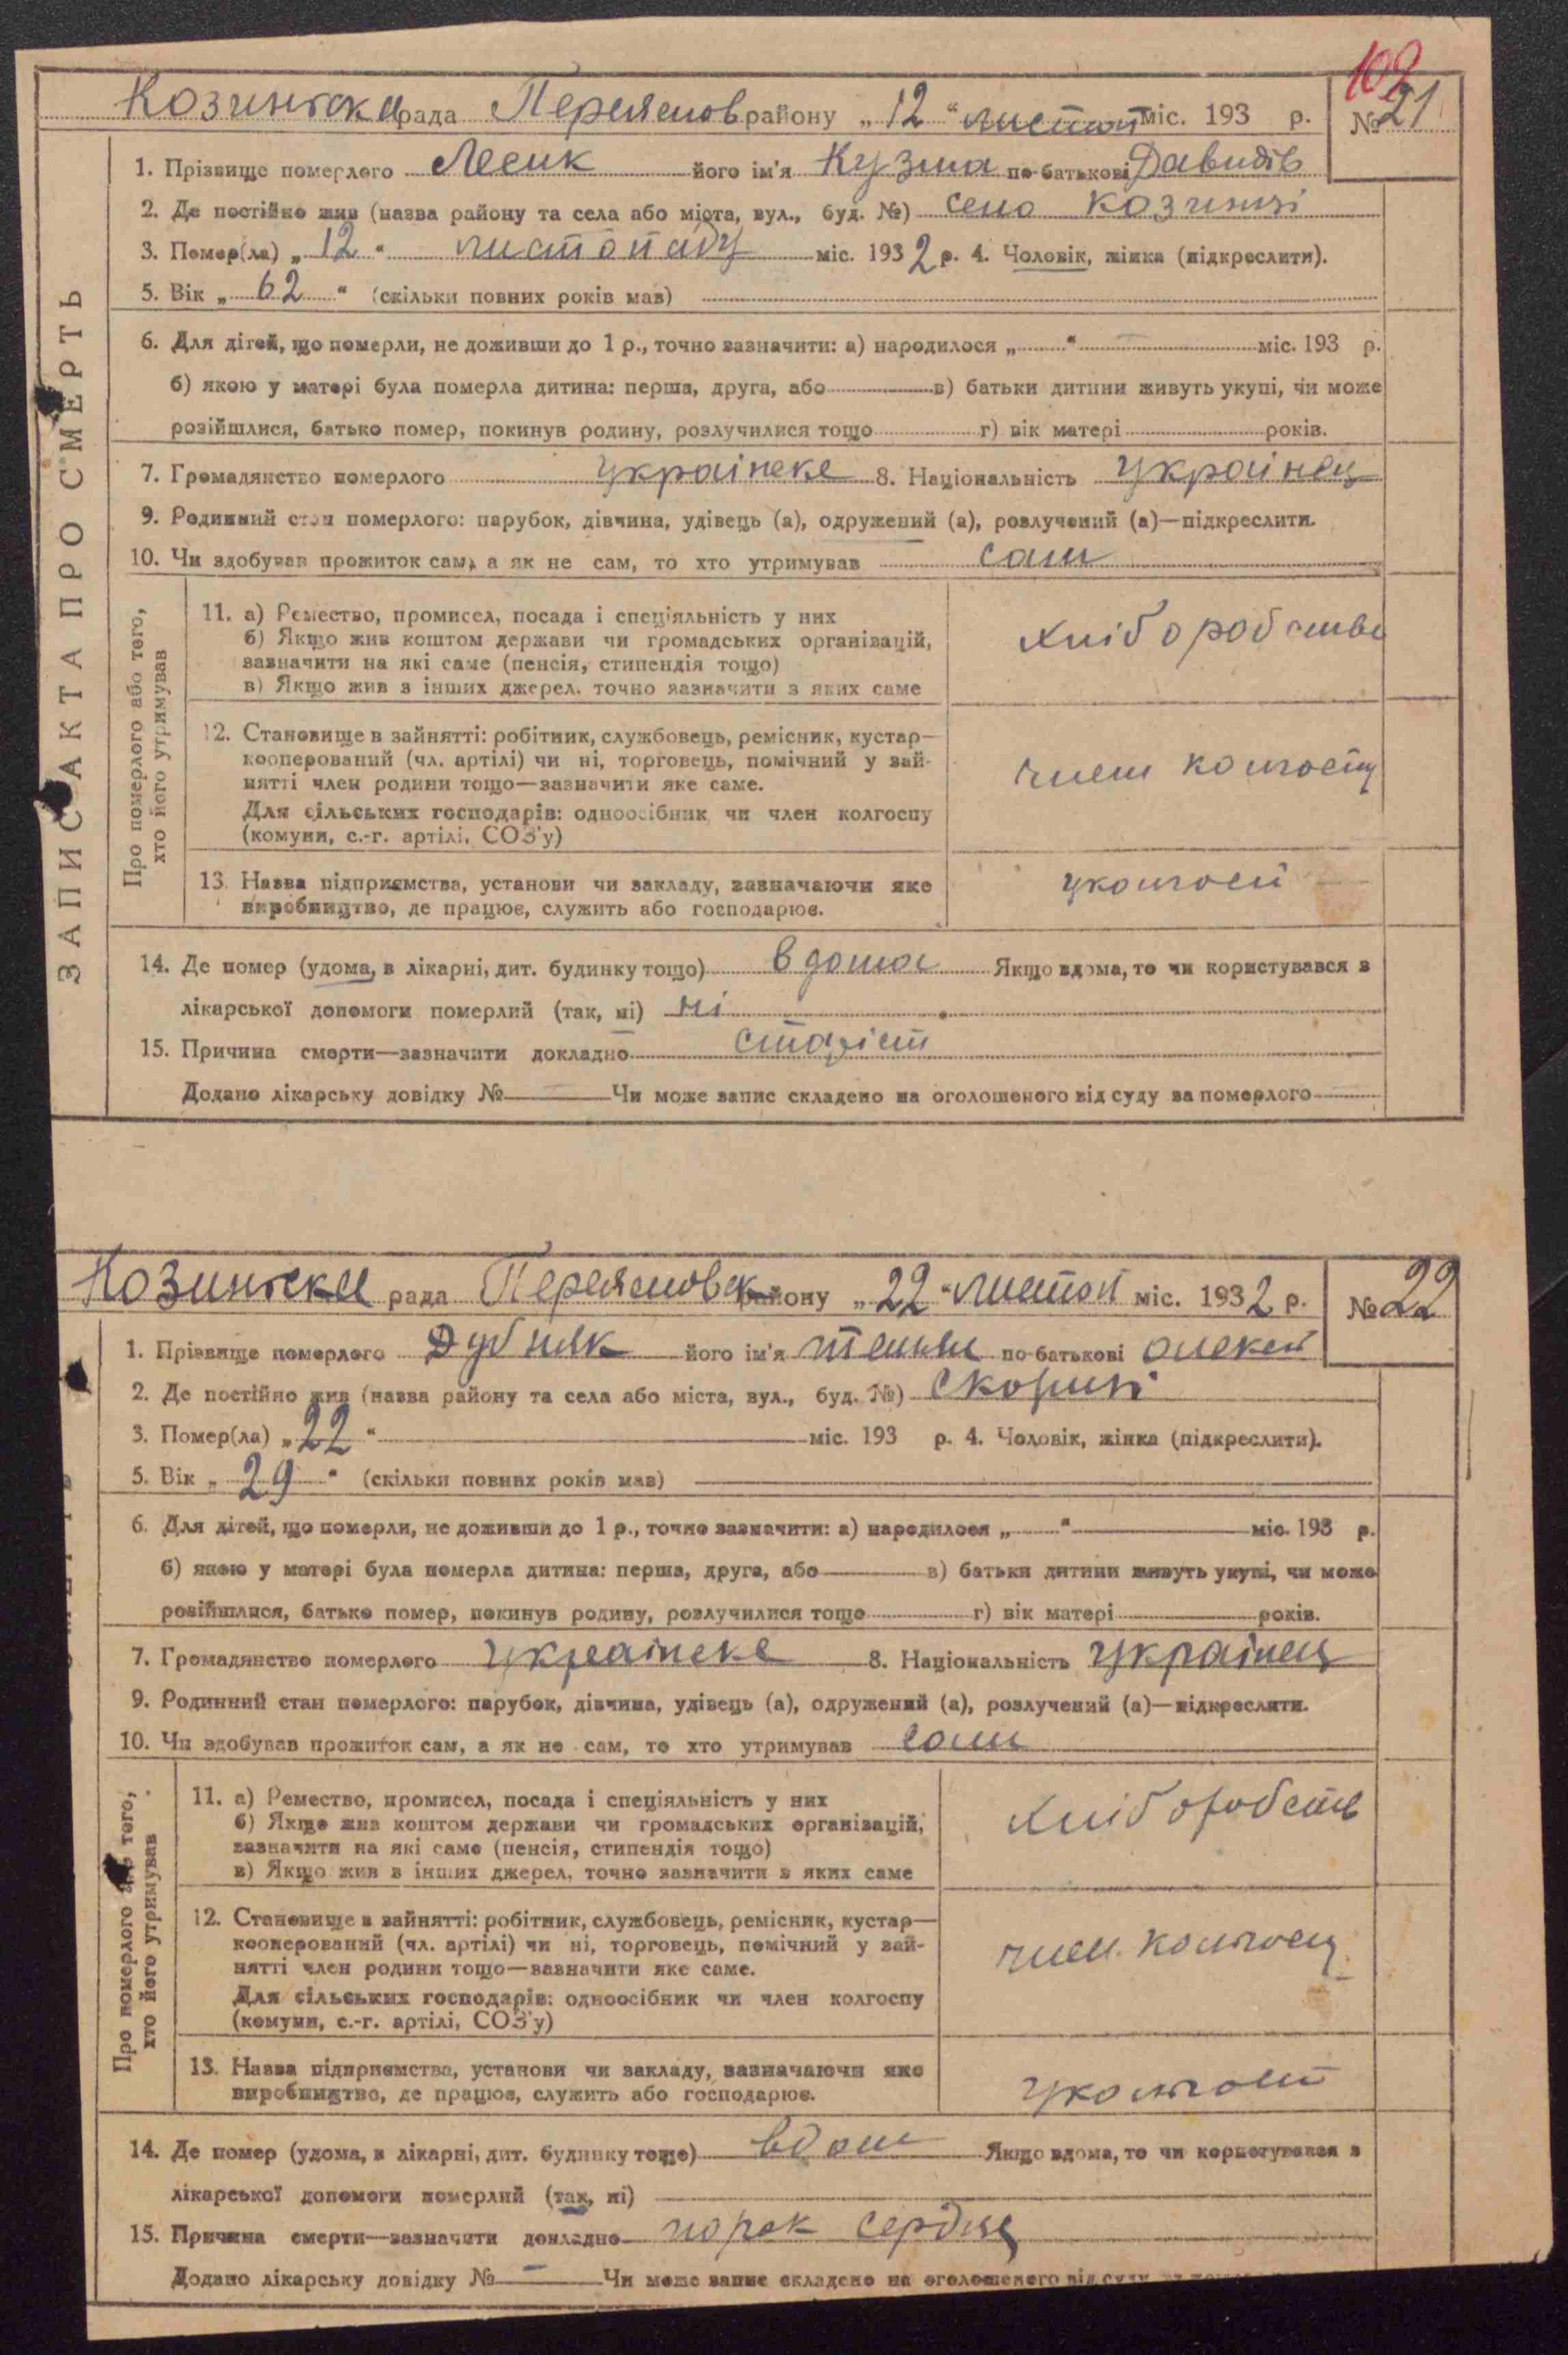 102
Козинська рада Переяслов району „12“ листопад міс. 193 р. № 21
1. Прізвище померлого Лесик його ім'я Кузма по-батькові Давидів
2. Де постійно жив (назва району та села або міста, вул., буд. №) село Козинці
3. Помер(ла) „12“ листопаду міс. 1932 р. 4. Чоловік, жінка (підкреслити).
5. Вік „62“ (скільки повних років мав)
6. Для дітей, що померли, не доживши до 1 р., точно зазначити: а) народилося „ “ міс. 193 р.
б) якою у матері була померла дитина: перша, друга, або в) батьки дитини живуть укупі, чи може
розійшлися, батько помер, покинув родину, розлучилися тощо г) вік матері років.
7. Громадянство померлого українске 8. Національність українец
9. Родинний стан померлого: парубок, дівчина, удівець (а), одружений (а), розлучений (а)—підкреслити.
10. Чи здобував прожиток сам, а як не сам, то хто утримував сам
ЗАПИС АКТА ПРО СМЕРТЬ
Про померлого або того,
хто його утримував
11. а) Ремество, промисел, посада і спеціяльність у них
б) Якщо жив коштом держави чи громадських організацій,
зазначити на які саме (пенсія, стипендія тощо)
в) Якщо жив з інших джерел, точно зазначити з яких саме
хліборобство
12. Становище в зайнятті: робітник, службовець, ремісник, кустар—
кооперований (чл. артілі) чи ні, торговець, помічний у зай-
нятті член родини тощо—зазначити яке саме.
Для сільських господарів: одноосібник чи член колгоспу
(комуни, с.-г. артілі, СОЗ'у)
член колгоспу
13. Назва підприємства, установи чи закладу, зазначаючи яке
виробництво, де працює, служить або господарює.
уколгосп
14. Де помер (удома, в лікарні, дит. будинку тощо) вдома Якщо вдома, то чи користувався з
лікарської допомоги померлий (так, ні) ні
15. Причина смерти—зазначити докладно старіст
Додано лікарську довідку № Чи може запис складено на оголошеного від суду за померлого
Козинська рада Переясловск району „22“ листоп міс. 1932 р. № 22
1. Прізвище померлого Дубняк його ім'я по-батькові Олексій
2. Де постійно жив (назва району та села або міста, вул., буд. №)
3. Помер(ла) „22“ міс. 193 р. 4. Чоловік, жінка (підкреслити).
5. Вік „29“ (скільки повних років мав)
6. Для дітей, що померли, не доживши до 1 р., точно зазначити: а) народилося „ “ міс. 193 р.
б) якою у матері була померла дитина: перша, друга, або в) батьки дитини живуть укупі, чи може
розійшлися, батько помер, покинув родину, розлучилися тощо г) вік матері років.
7. Громадянство померлого українске 8. Національність українец
9. Родинний стан померлого: парубок, дівчина, удівець (а), одружений (а), розлучений (а)—підкреслити.
10. Чи здобував прожиток сам, а як не сам, то хто утримував сам
Про померлого або того,
хто його утримував
11. а) Ремество, промисел, посада і спеціяльність у них
б) Якщо жив коштом держави чи громадських організацій,
зазначити на які саме (пенсія, стипендія тощо)
в) Якщо жив з інших джерел, точно зазначити з яких саме
хліборобств
12. Становище в зайнятті: робітник, службовець, ремісник, кустар—
кооперований (чл. артілі) чи ні, торговець, помічний у зай-
нятті член родини тощо—зазначити яке саме.
Для сільських господарів: одноосібник чи член колгоспу
(комуни, с.-г. артілі, СОЗ'у)
член. колгоспу
13. Назва підприємства, установи чи закладу, зазначаючи яке
виробництво, де працює, служить або господарює.
уколгосп
14. Де помер (удома, в лікарні, дит. будинку тощо) вдом Якщо вдома, то чи користувався з
лікарської допомоги померлий (так, ні)
15. Причина смерти—зазначити докладно порок сердця
Додано лікарську довідку № Чи може запис складено на оголошеного від суду